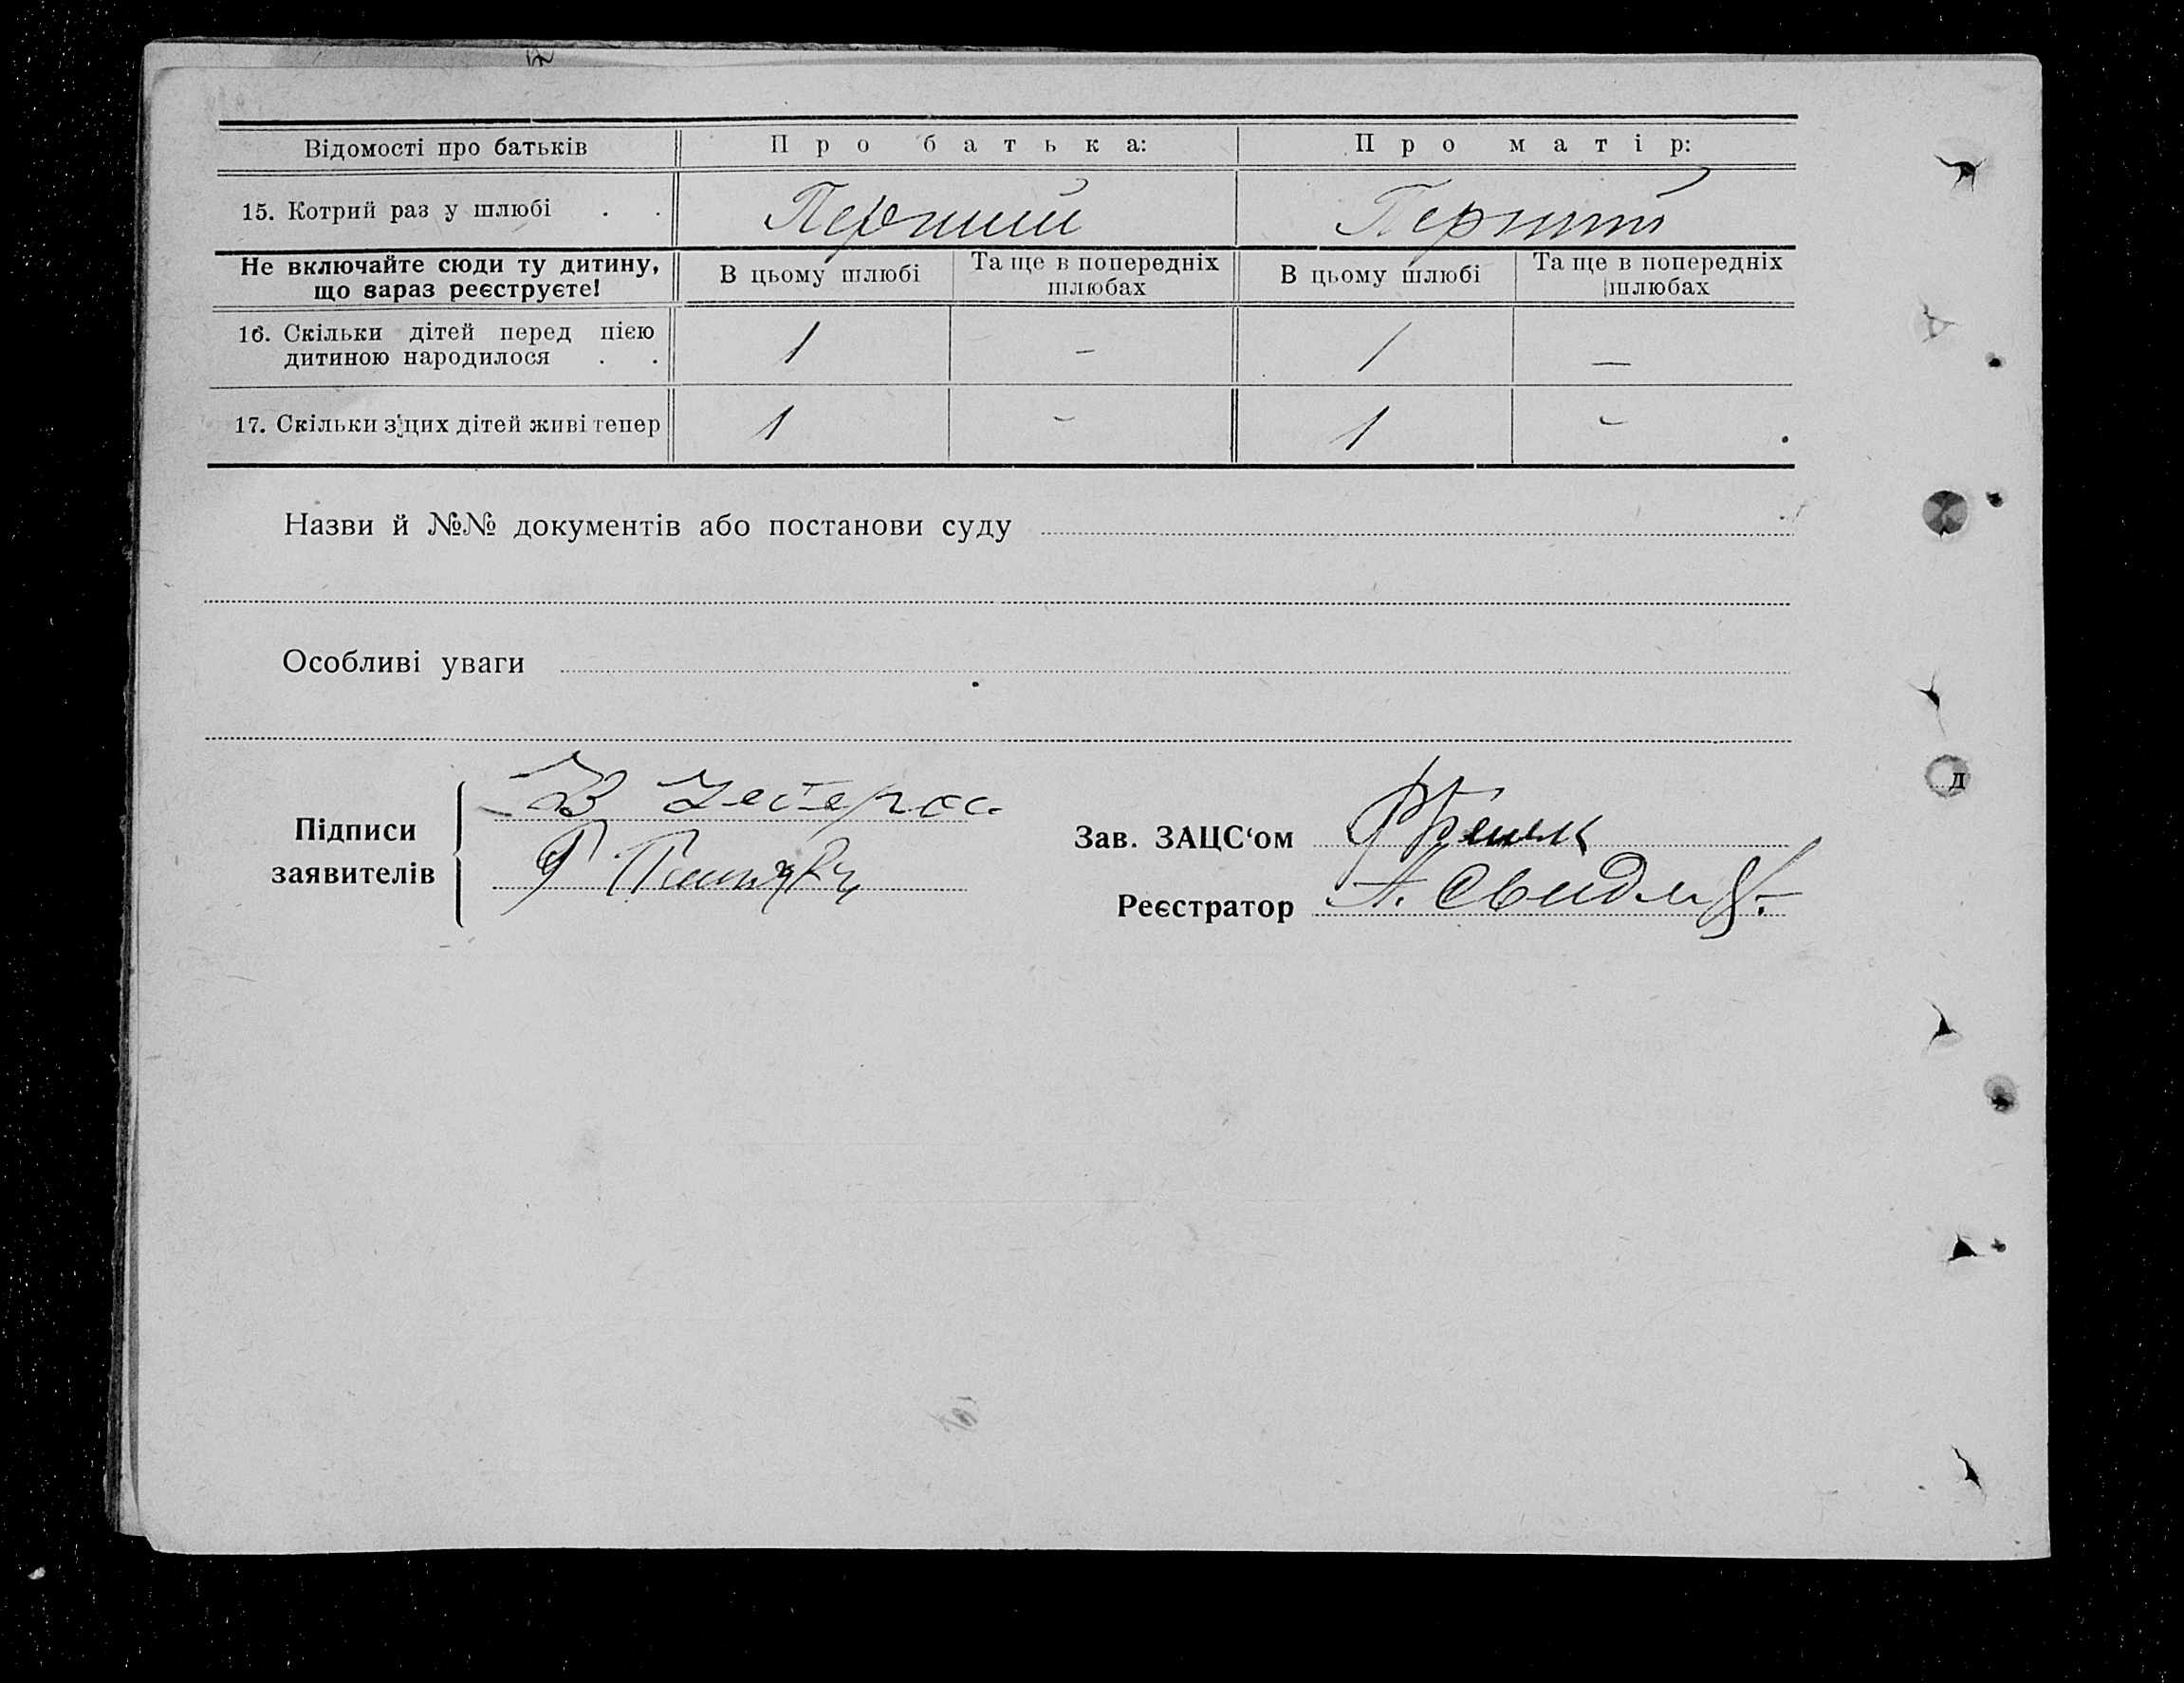 Відомості про батьків Про батька: Про матір:
15. Котрий раз у шлюбі . . Перший Перший
Не включайте сюди ту дитину, що зараз реєструєте! В цьому шлюбі Та ще в попередніх шлюбах В цьому шлюбі Та ще в попередніх шлюбах
16. Скільки дітей перед цією
дитиною народилося . . 1 – 1 —
17. Скільки з цих дітей живі тепер 1 – 1 –
Назви й №№ документів або постанови суду
Особливі уваги
Підписи
заявителів
Зав. ЗАЦС‘ом
Реєстратор А.
д